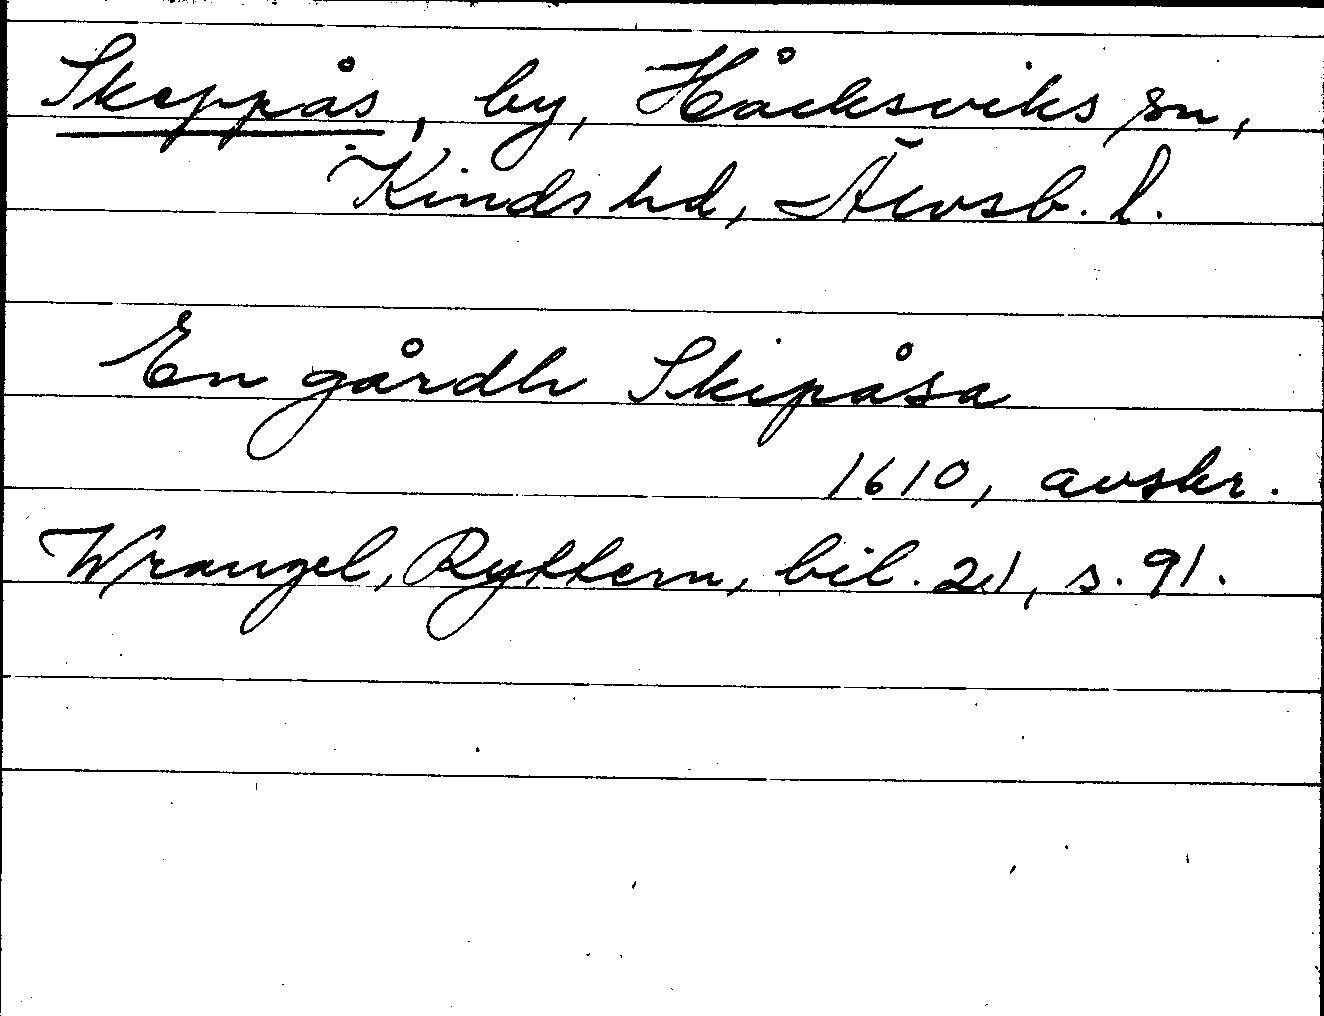 Skeppås, by, Håcksviks sn,
Kinds hd, Älvsb. l.
En gårdh Skipåsa
1610, avskr.
Wrangel, Ryttern, bil. 21, s. 91.